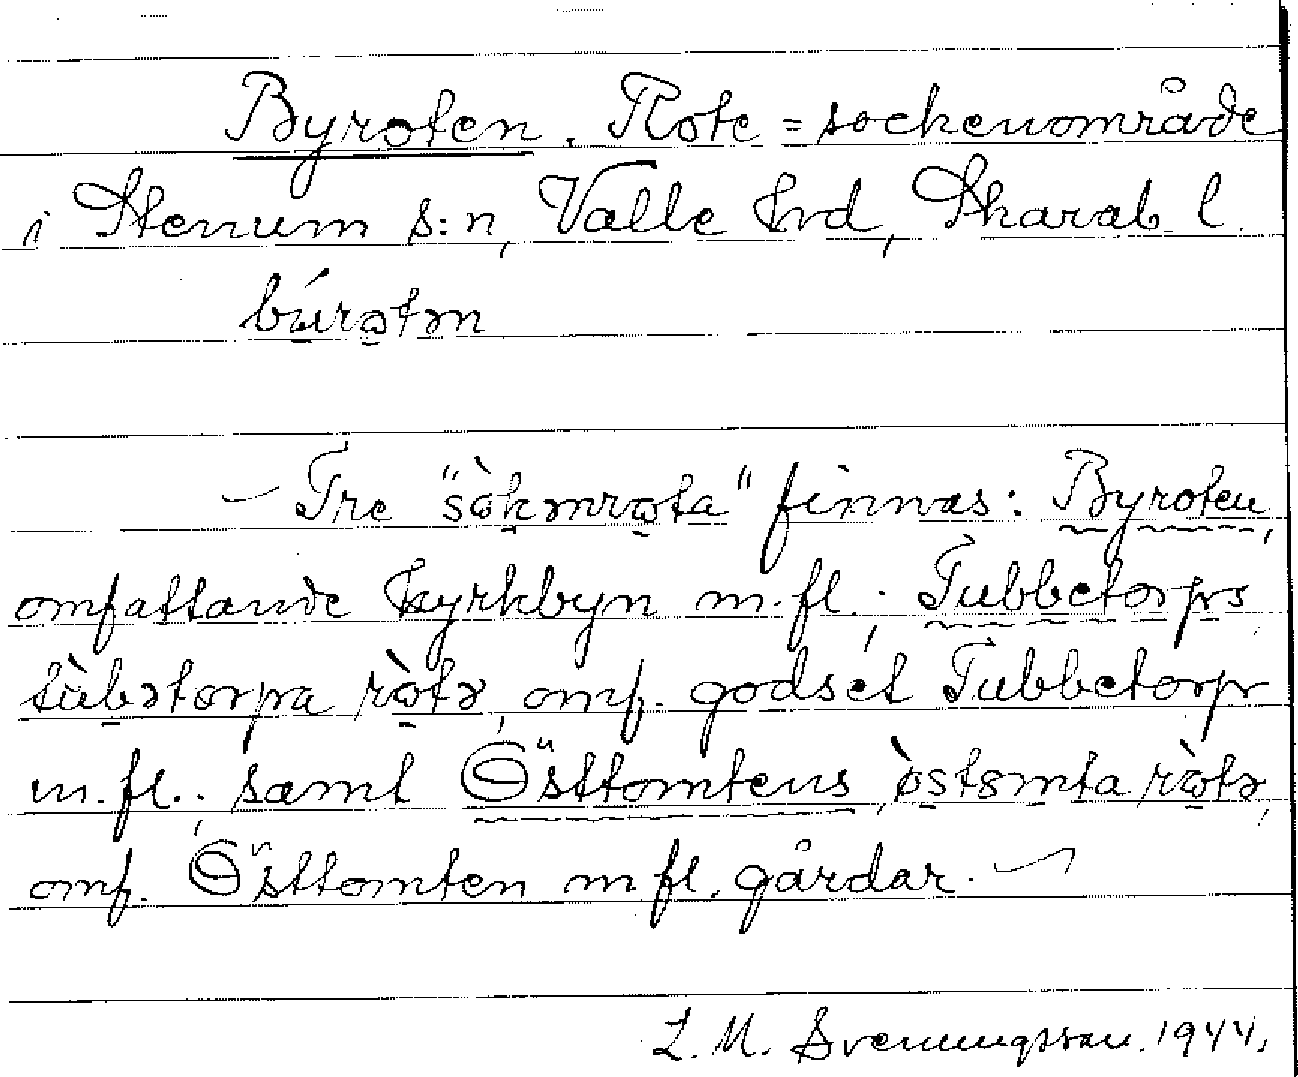 Byroten. Rote = sockenområde
i Stenum s:n, Valle hrd, Skarab. l.
búrotən
– Tre "sòkənrota" finnas: Byroten,
omfattande kyrkbyn m.fl.; Tubbetorps
tùbətorpa ròtə, omf. godset Tubbetorp
m.fl.; samt Östtomtens, òstomta ròtə,
omf. Östtomten m fl. gårdar. –
L. M. Svenungsson. 1944.